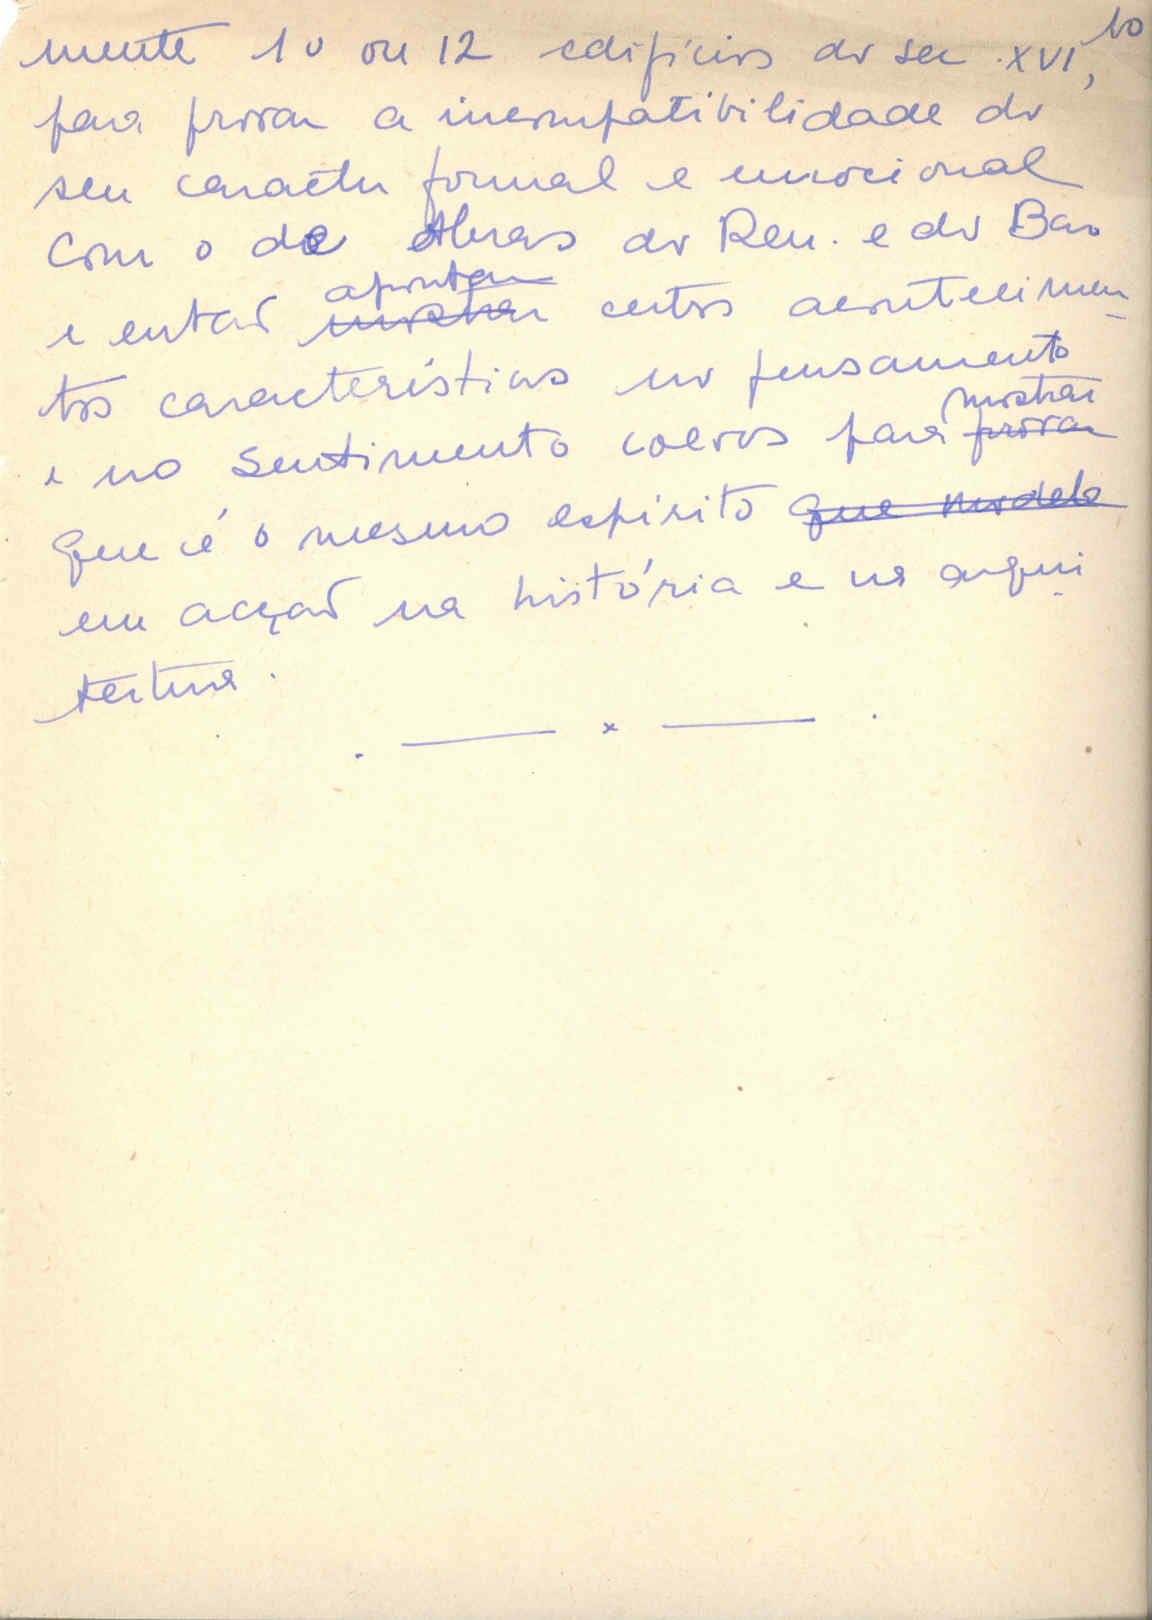 10
mente 10 ou 12 edifícios do sec. XVI,
para provar a incompatibilidade do
seu caracter formal e emocional
com o de obras do Ren. e do Bar.
apontar
e então mostrar certos acontecimen-
tos caracteristicos no pensamento
mostrar
e no sentimento coevos para provar
que é o mesmo espirito que modela
em acção na história e na arqui-
tectura.
. —— x —— .